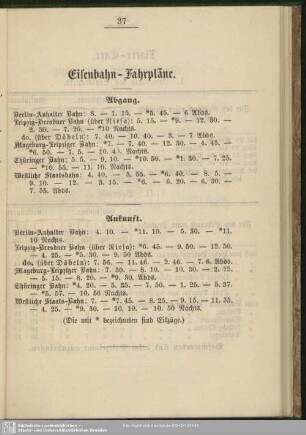 37
Eisenbahn-Fahrpläne.
Abgang.
Berlin-Anhalter Bahn: 8. — 1. 15. — *5. 45. — 6 Abds.
Leipzig-Dresdner Bahn (über Riesa): 5. 15. — *9. — 12. 30. —
2. 30. — 7. 25. — *10 Nachts.
do. (über Döbeln): 7. 40. — 10. 40. — 3. — 7 Abds.
Magdeburg-Leipziger Bahn: *7. — 7. 40. — 12. 30. — 4. 45. —
*6. 50. Bahn: 5. 5. — 10. Nachts.
Thüringer Bahn: 5. 5. — 9. 10. — *10. 50. — *1. 30. — 7. 25.
— *10. 55. — 11. 10. Nachts.
Westliche Staatsbahn: 4. 40. — 5. 55. — *6. 40. — 8. 5. —
9. 10. — 12. — 3. 15. — *6. — 6. 20. — 6. 30. —
7. 55. Abds.
Ankunft.
Berlin-Anhalter Bahn: 4. 10. — *11. 10. — 5. 30. — *11.
10 Nachts.
Leipzig-Dresdner Bahn (über Riesa): *6. 45. — 9. 50. — 12. 50.
— 4. 25. — *5. 30. — 9. 50 Abds.
do. (über Döbeln): 7. 56. — 11. 46. — 2. 46. — 7. 6. Abds.
Magdeburg-Leipziger Bahn: 7. 50. — 8. 10. — 10. 30. — 2. 25.
— 5. 15. — *8. 30. — 9. 20. Abds.
Thüringer Bahn: *4. 20. — 5. 35. — 7. 50. — 1. 25. — 5. 37.
— *5. 57. — 10. 56 Nachts.
Westliche Staats-Bahn: 7. — *7. 45. — 8. 25. — 9. 15. — 11. 55.
— 4. 25. — *9. 30. — 10. 10. — 10. 50 Nachts.
(Die mit * bezeichneten sind Eilzüge.)